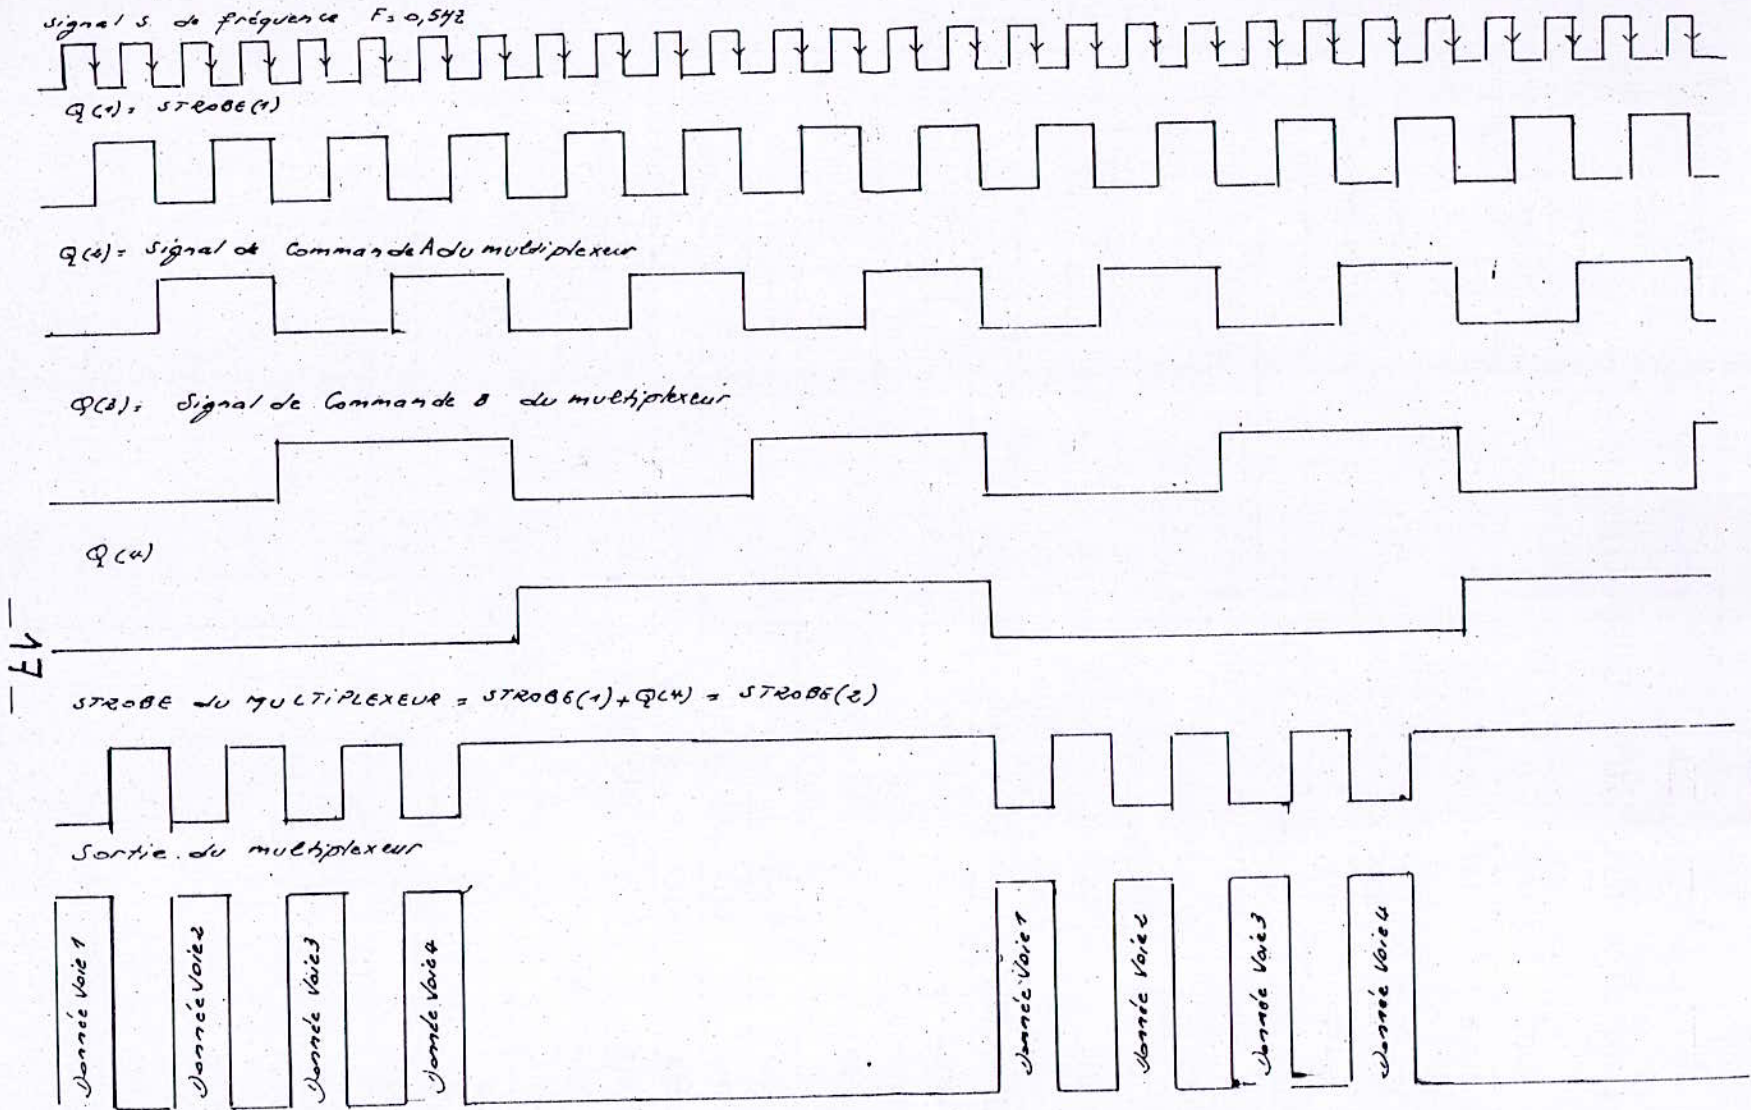 signal S. de fréquence F= 0,5HZ
Q(1)= STROBE(1)
Q(2)= Signal de Commande A du multiplexeur
Q(3)= Signal de Commande B du multiplexeur
Q(4)
STROBE du MULTIPLEXEUR = STROBE(1)+Q(4) = STROBE(2)
Sortie du multiplexeur
Donnée Voie 1
Donnée Voie 2
Donnée Voie 3
Donnée Voie 4
Donnée Voie 1
Donnée Voie 2
Donnée Voie 3
Donnée Voie 4